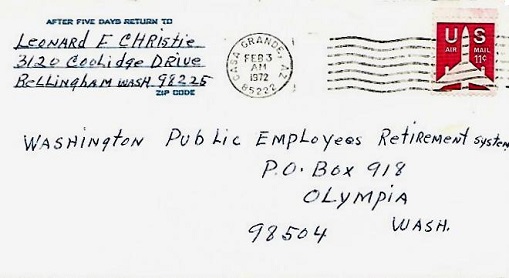 AFTER FIVE DAYS RETURN TO
Leonard E Christie
3120 Coolidge Drive
Bellingham Wash 98225
ZIP CODE
CASA GRANDE, AZ
FEB 3
AM
1972
85222
US
AIR MAIL
11¢
Washington Public Employees Retirement System
P.O. Box 918
Olympia
Wash.
98504